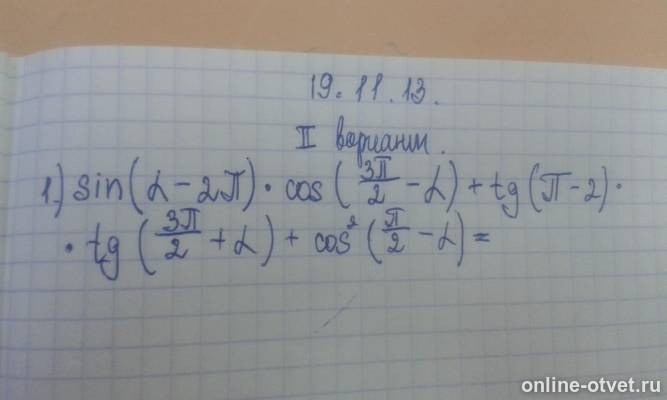 19.11.13.
II вариант.
1.) sin(α-2π)·cos(3π/2-α)+tg(π-2)·
·tg(3π/2+α)+cos²(π/2-α)=
online-otvet.ru